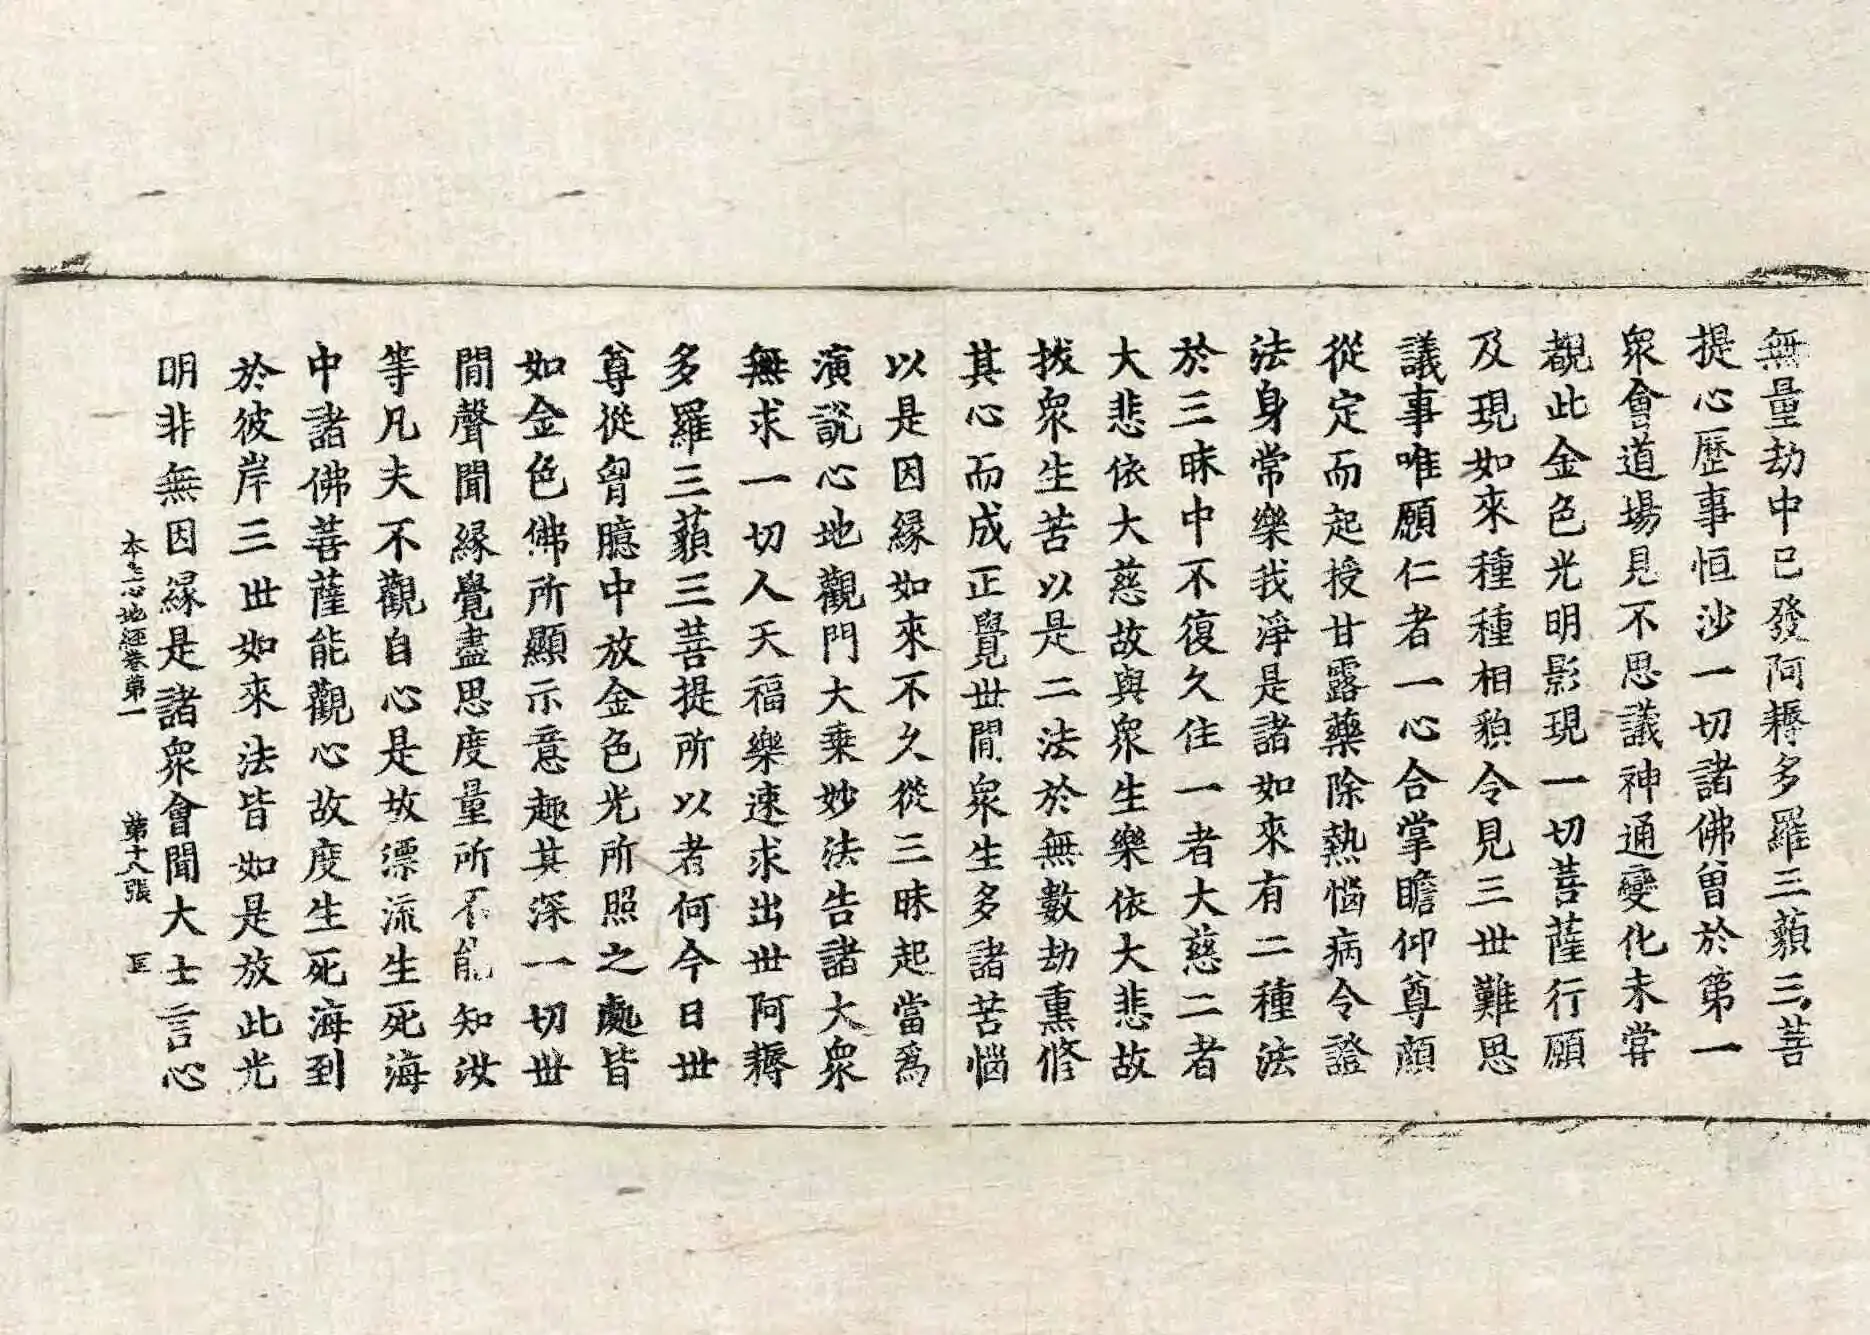 無量劫中已發阿耨多羅三藐三菩
提心歷事恒沙一切諸佛曾於第一
衆會道場見不思議神通變化未甞
覩此金色光明影現一切菩薩行願
及現如來種種相貌令見三世難思
議事唯願仁者一心合掌瞻仰尊顔
從定而起授甘露藥除熱惱病令證
法身常樂我淨是諸如來有二種法
於三昧中不復久住一者大慈二者
大悲依大慈故與衆生樂依大悲故
拔衆生苦以是二法於無數劫熏修
其心而成正覺世間衆生多諸苦惱
以是因緣如來不久從三昧起當爲
演說心地觀門大乗妙法告諸大衆
無求一切人天福樂速求出世阿耨
多羅三藐三菩提所以者何今日世
尊從胷臆中放金色光所照之處皆
如金色佛所顯示意趣甚深一切世
間聲聞緣覺盡思度量所不能知汝
等凡夫不觀自心是故漂流生死海
中諸佛菩薩能觀心故度生死海到
於彼岸三世如來法皆如是放此光
明非無因緣是諸衆會聞大士言心
本生心地經卷第一 第十八張